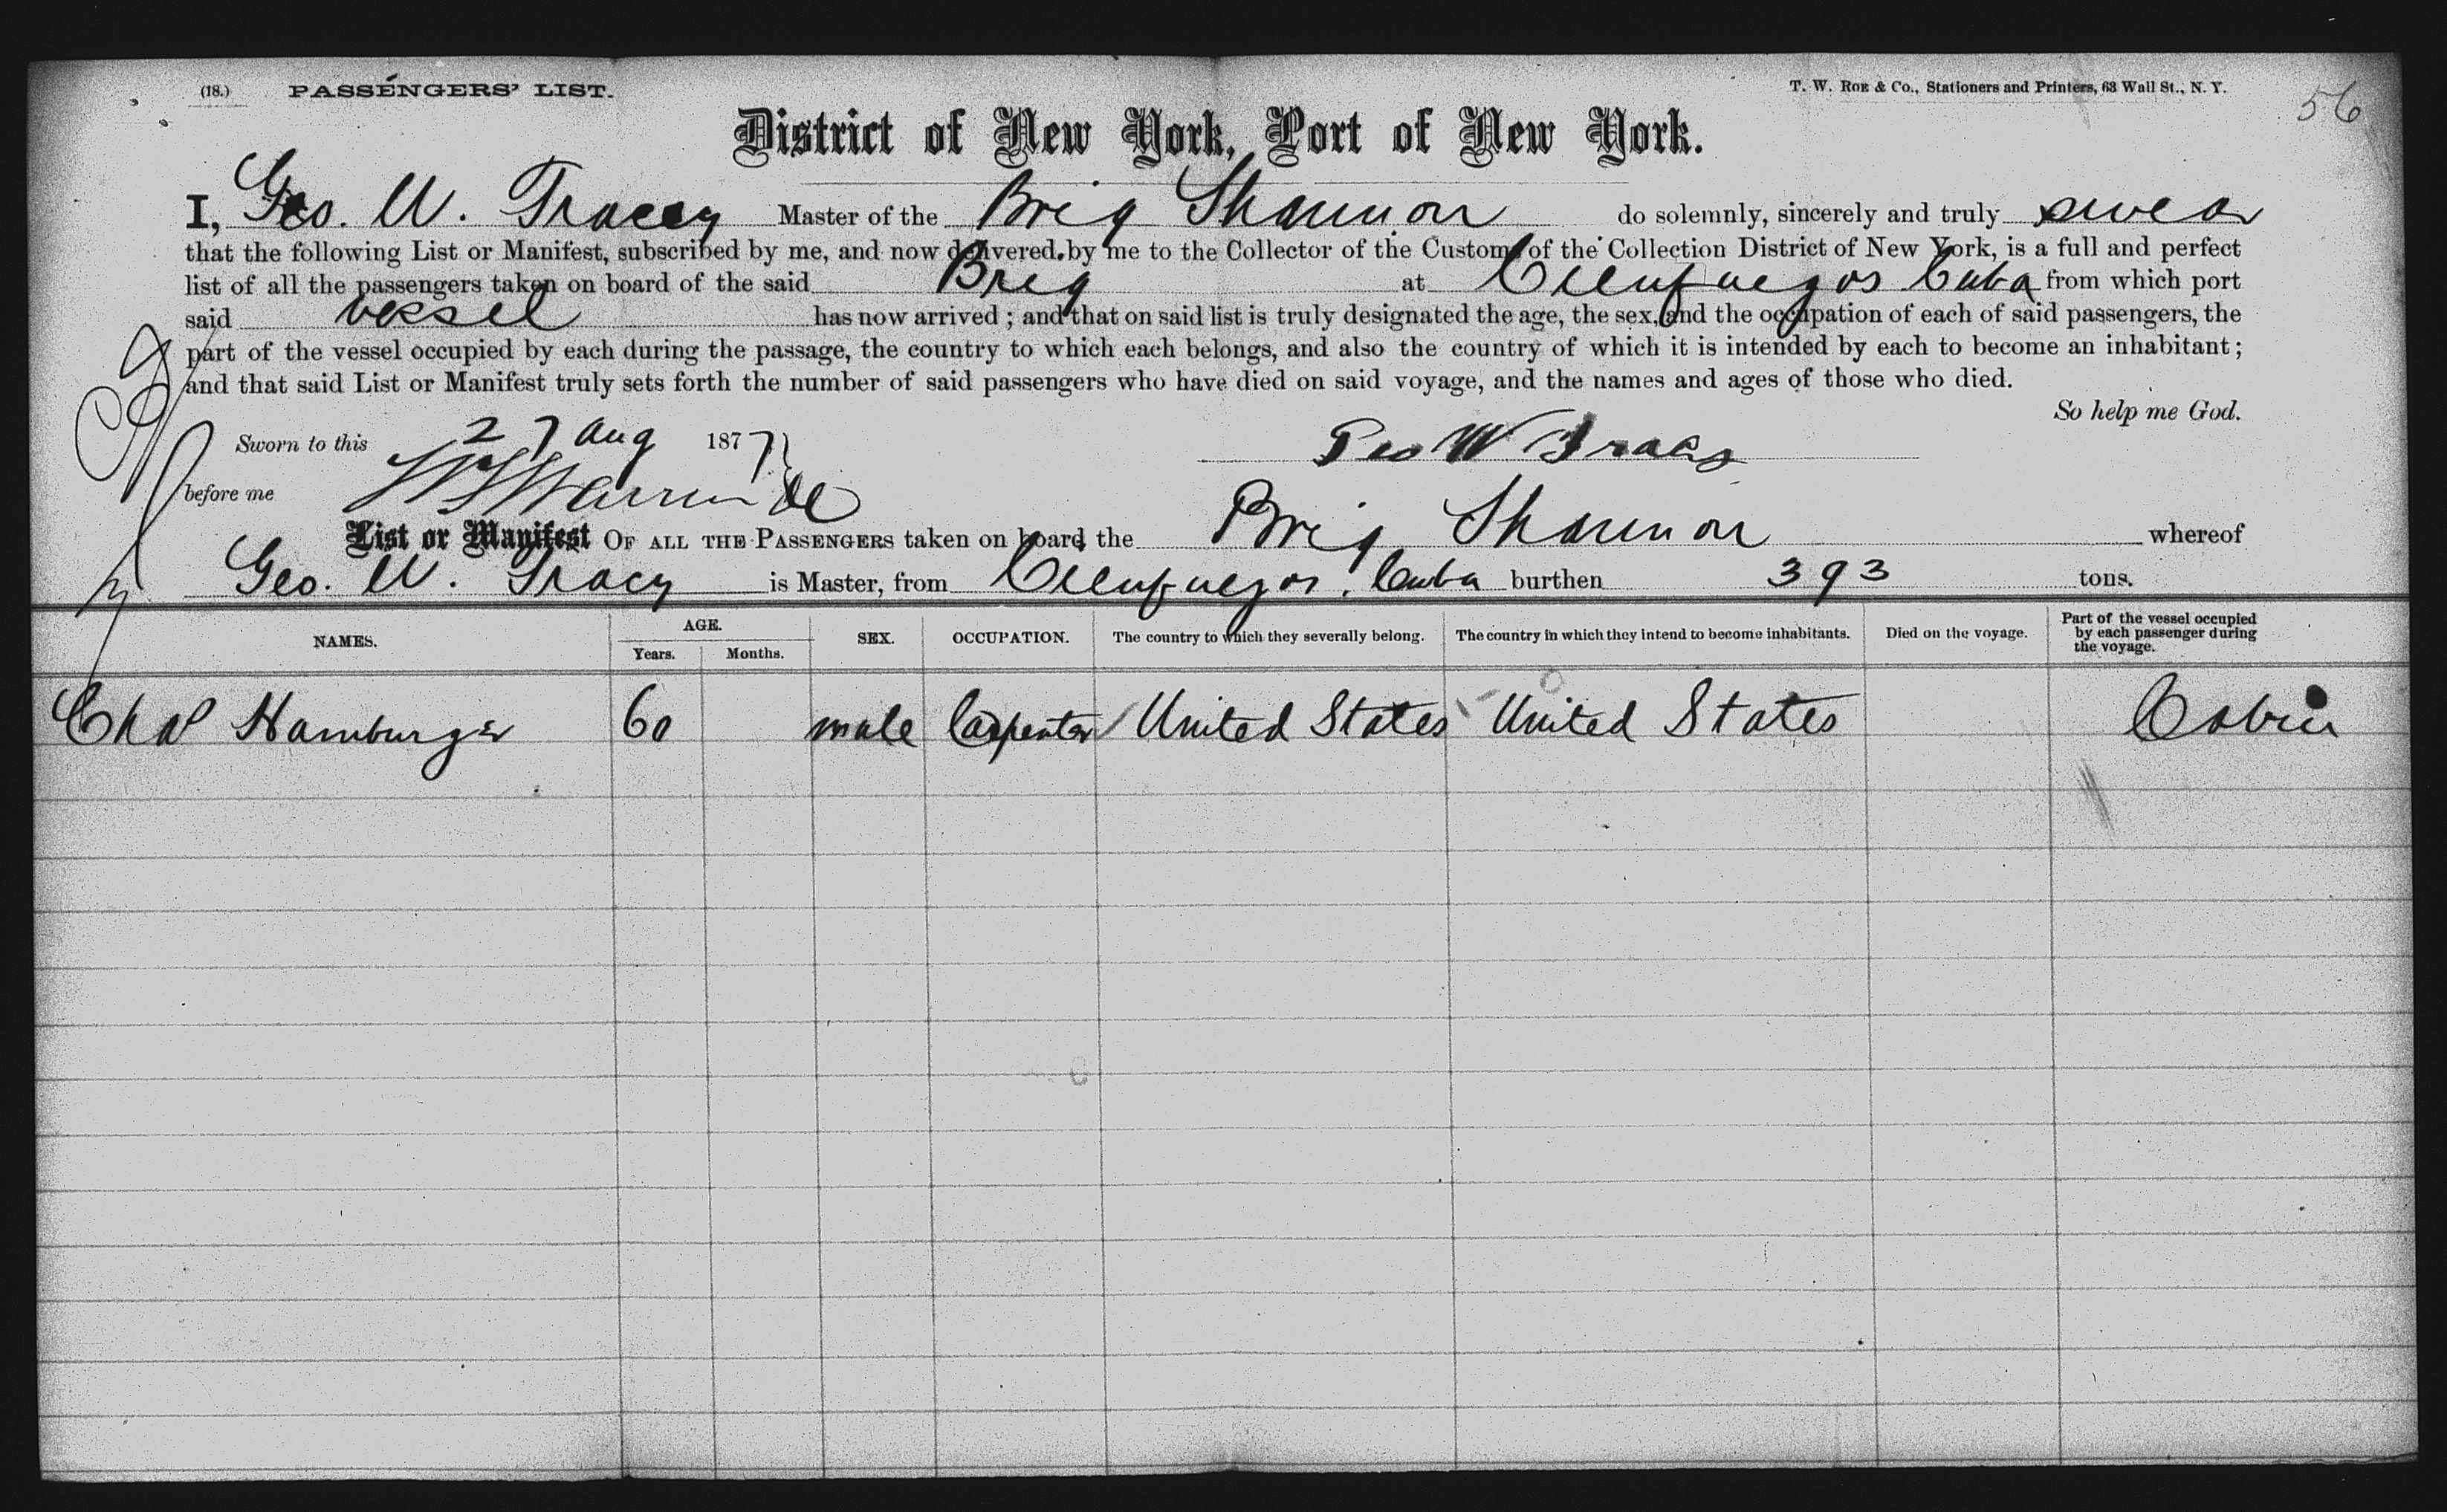 (18.) PASSENGERS' LIST. T. W. Roe & Co., Stationers and Printers, 63 Wall St., N. Y. 56
District of New York, Port of New York.
I, Geo. W. Tracey Master of the Brig Shannon do solemnly, sincerely and truly swear
that the following List or Manifest, subscribed by me, and now delivered by me to the Collector of the Customs of the Collection District of New York, is a full and perfect
list of all the passengers taken on board of the said Brig at Cienfuegos Cuba from which port
said vessel has now arrived ; and that on said list is truly designated the age, the sex, and the occupation of each of said passengers, the
part of the vessel occupied by each during the passage, the country to which each belongs, and also the country of which it is intended by each to become an inhabitant ;
and that said List or Manifest truly sets forth the number of said passengers who have died on said voyage, and the names and ages of those who died.
So help me God.
Sworn to this 27 Aug 1877 Geo W Tracy
before me
List or Manifest OF ALL THE PASSENGERS taken on board the Brig Shannon whereof
Geo. W. Tracy is Master, from Cienfuegos, Cuba burthen 393 tons.
NAMES. AGE. Years. Months. SEX. OCCUPATION. The country to which they severally belong. The country in which they intend to become inhabitants. Died on the voyage. Part of the vessel occupied by each passenger during the voyage.
Chas Hamburger 60 male Carpenter United States United States Cabin